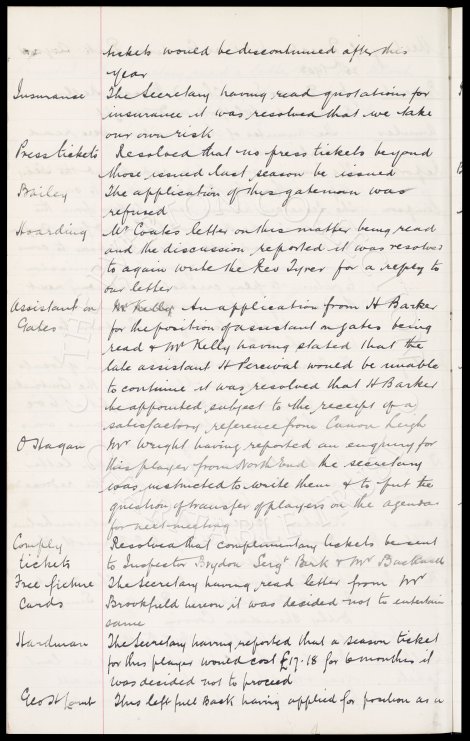 tickets would be discontinued after this
year
Insurance The Secretary having read quotations for
insurance it was resolved that we take
our own risk
Press tickets Resolved that no press tickets beyond
those issued last season be issued
Bailey The application of this gateman was
refused
Hoarding Mr Coates letter on this matter being read
and the discussion reported it was resolved
to again write the Rev Tyrer for a reply to
our letter
Assistant on Mr Kelly An application from H Barker
Gates for the position of assistant on gates being
read & Mr Kelly having stated that the
late assistant H Percival would be unable
to continue it was resolved that H Barker
be appointed subject to the receipt of a
satisfactory reference from Canon Leigh
O'Hagan Mr Wright having reported an enquiry for
this player from North End the secretary
was instructed to write them & to put the
question of transfer of players on the agenda
for next meeting
Comply Resolved that complimentary tickets be sent
tickets to Inspector Brydon Sergt Bark & Mr
Free fixture The Secretary having read letter from Mr
Cards Brookfield hereon it was decided not to entertain
same
Hardman The Secretary having reported that a season ticket
for this player would cost £17-18 for 6 months it
was decided not to proceed
Geo H This left full Back having applied for position as a